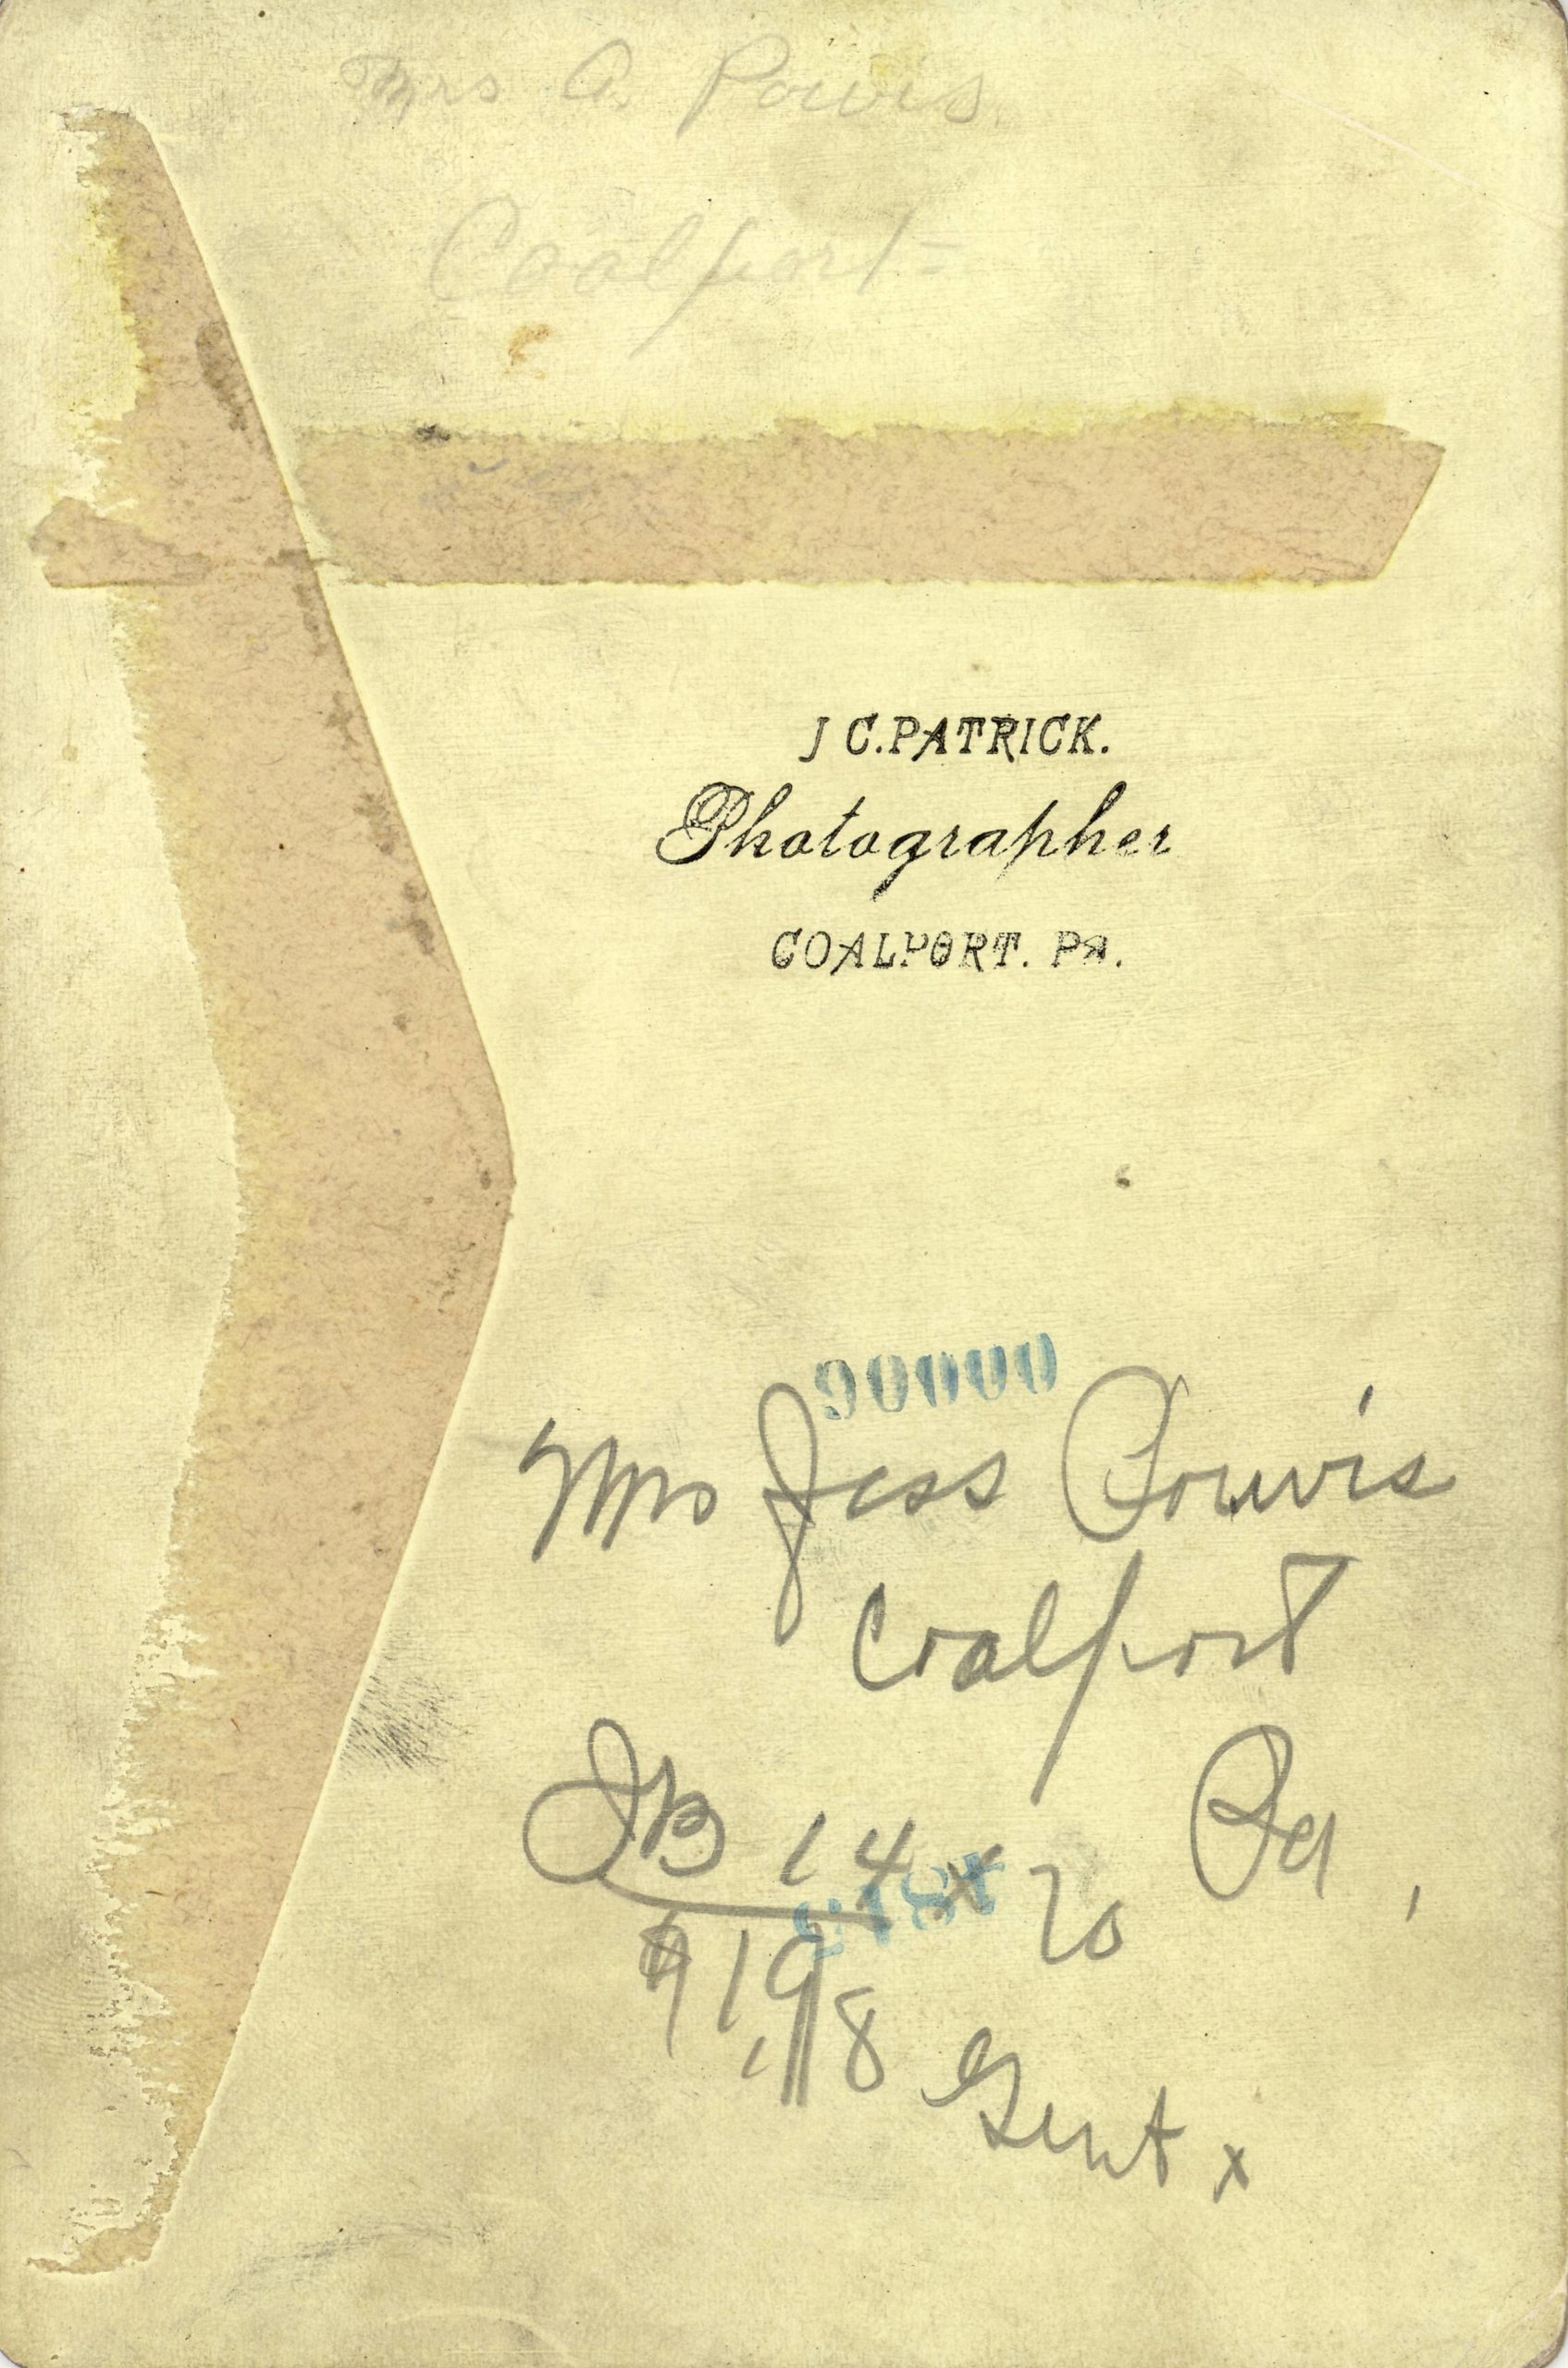 Mrs A. Powis
Coalport
J C. PATRICK.
Photographer
COALPORT. PA.
90000
Mrs Jess Powis
Coalport
Pa,
JB 14 x 20
Gent. x